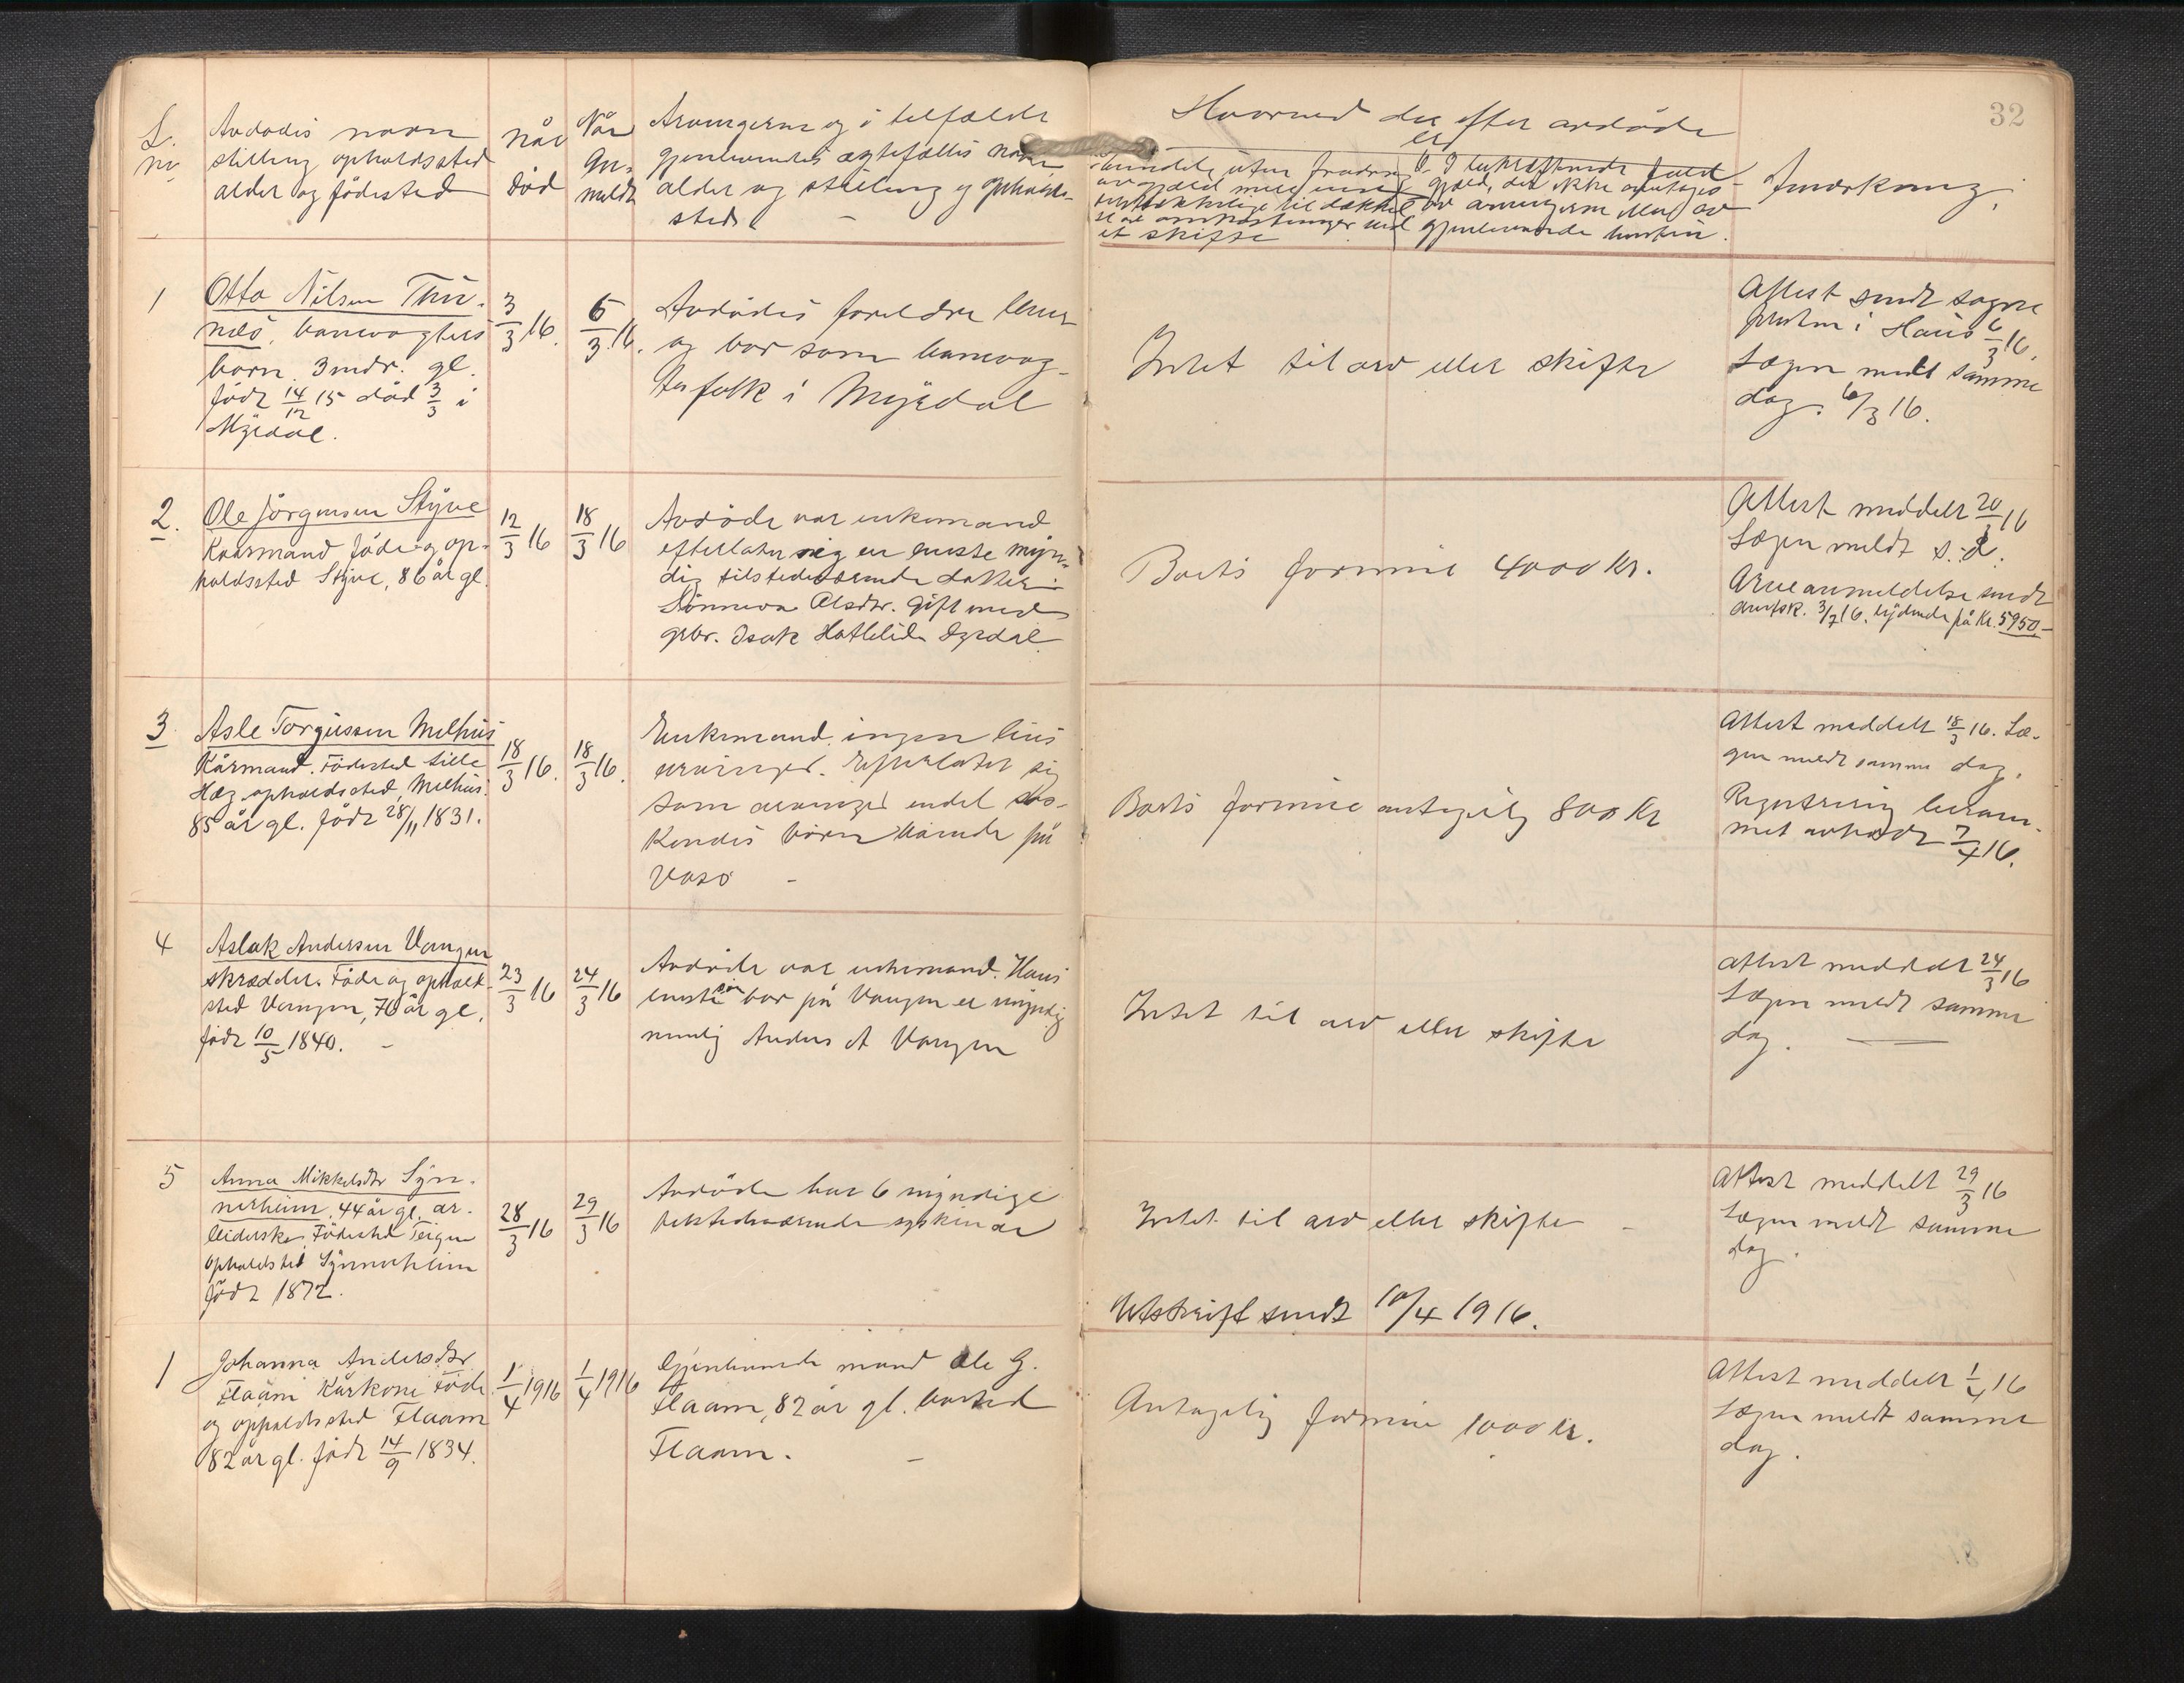 32
L.
no
Avdødes navn
stilling opholdssted
alder og fødested
når
død
Når
an-
meldt
Arvingerne og i tilfælde
gjenlevendes ægtefælles navn
alder og stilling og opholds-
sted
Hvorvidt der efter avdøde
er
et skifte
gjenlevende
Anmerkning.
1
Otto Nilsen Thu-
nes, banevogters
barn 3 mdr. gl.
født 14/12 15 død 3/3 i
Myrdal.
3/3 16.
6/3 16.
Avdødes foreldre lever
og bor som banevog-
terfolk i Myrdal
Intet til arv eller skifte
Attest sendt sogne
presten i Haus 6/3 16.
Lægen meldt samme
dag. 6/3 16.
2.
Ole Jørgensen Styve
Kaarmand føde og op-
holdssted Styve, 86 år gl.
12/3 16
18/3 16
Avdøde var enkemand
efterlater sig en eneste myn-
dig tilstedeværende datter
Sønneva Olsdtr. gift med
gbr. Isak Hatlelid
Boets formue 4000 kr.
Attest meddelt 20/3 16
Lægen meldt s. d.
Arveanmeldelse sendt
amtsk. 3/7 16. lydende på Kr. 5950 -
3
Asle Torgussen Melhus
Kårmand. Fødested lille
Hæg opholdssted, Melhus.
85 år gl. født 28/11 1831.
18/3 16.
18/3 16.
Enkemand ingen livs
arvinger. Efterlater sig
som arvinger endel søs-
kendes børn boende på
Voss -
Boets formue antagelig 800 Kr
Attest meddelt 18/3 16. Læ-
gen meldt samme dag.
Registrering beram-
met avholdt 7/4 16.
4
Aslak Andersen Vangen
skrædder. Føde og opholds-
sted Vangen, 76 år gl.
født 10/5 1840. -
23/3 16
24/3 16
Avdøde var enkemand. Hans
eneste søn bor på Vangen er myndig
nemlig Anders A Vangen
Intet til arv eller skifte
Attest meddelt 24/3 16
Lægen meldt samme
dag.
5
Anna Mikkelsdtr Syn-
nerheim, 44 år gl. ar-
beiderske, Fødested Teigen
opholdsted Synnerheim
født 1872.
28/3 16
29/3 16
Avdøde har 6 myndige
tilstedeværende syskinar
Intet til arv eller skifte -
Attest meddelt 29/3 16
Lægen meldt samme
dag.
Utskrift sendt 10/4 1916.
1
Johanna Andersdtr
Flaam Kårkone Føde
og opholdssted Flaam
82 år gl. født 14/9 1834.
1/4 1916
1/4 1916
Gjenlevende mand Ole G.
Flaam, 82 år gl. bosted
Flaam. -
Antagelig formue 1000 kr.
Attest meddelt 1/4 16
Lægen meldt samme
dag.